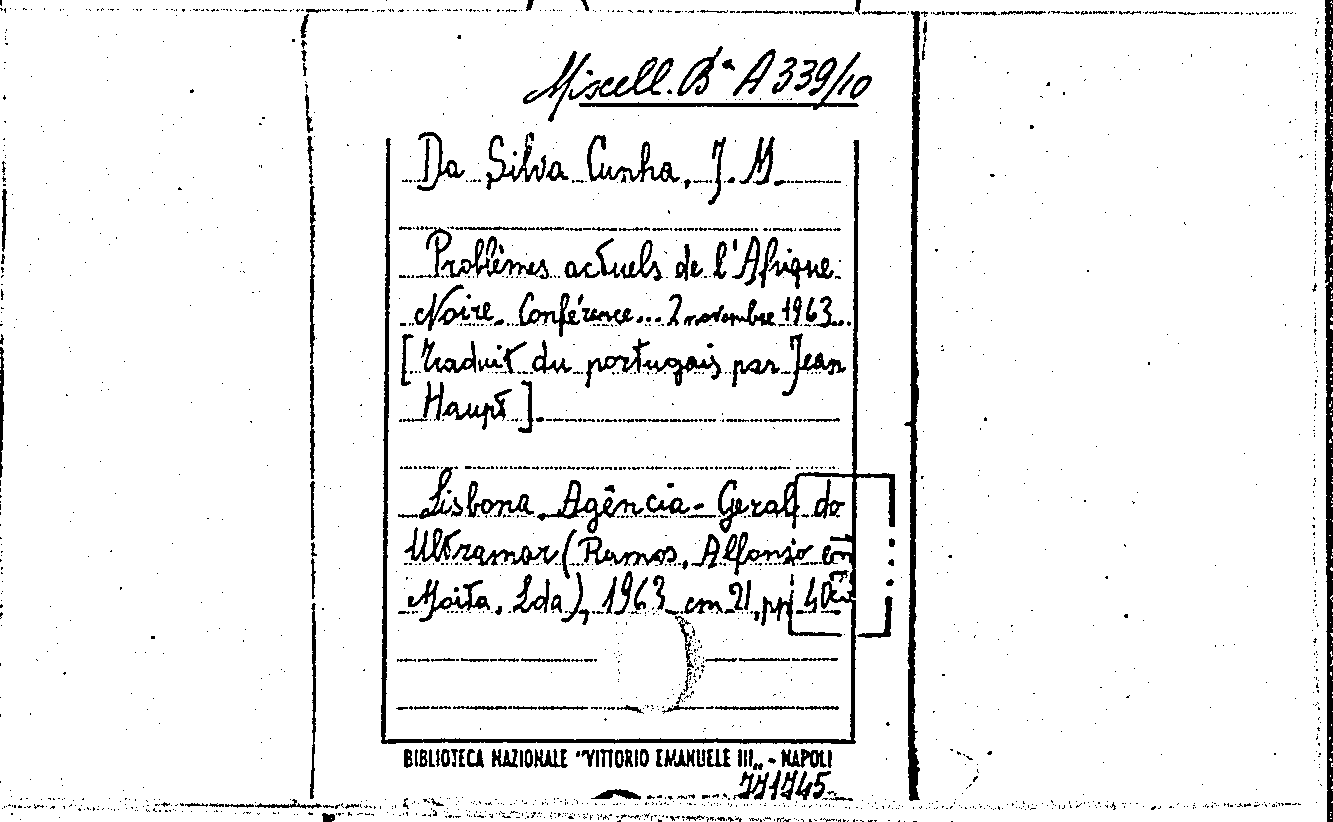 Miscell. Bª A 339/10
Da Silva Cunha, J. M.
Problèmes actuels de l'Afrique
Noire. Conférence... 2 novembre 1963...
[Traduit du portugais par Jean
Haupt].
Lisbona, Agência-Geral do
Ultramar (Ramos, Alfonso em
Moita, Lda), 1963 cm 21, pp
BIBLIOTECA NAZIONALE "VITTORIO EMANUELE III„ - NAPOLI
771745